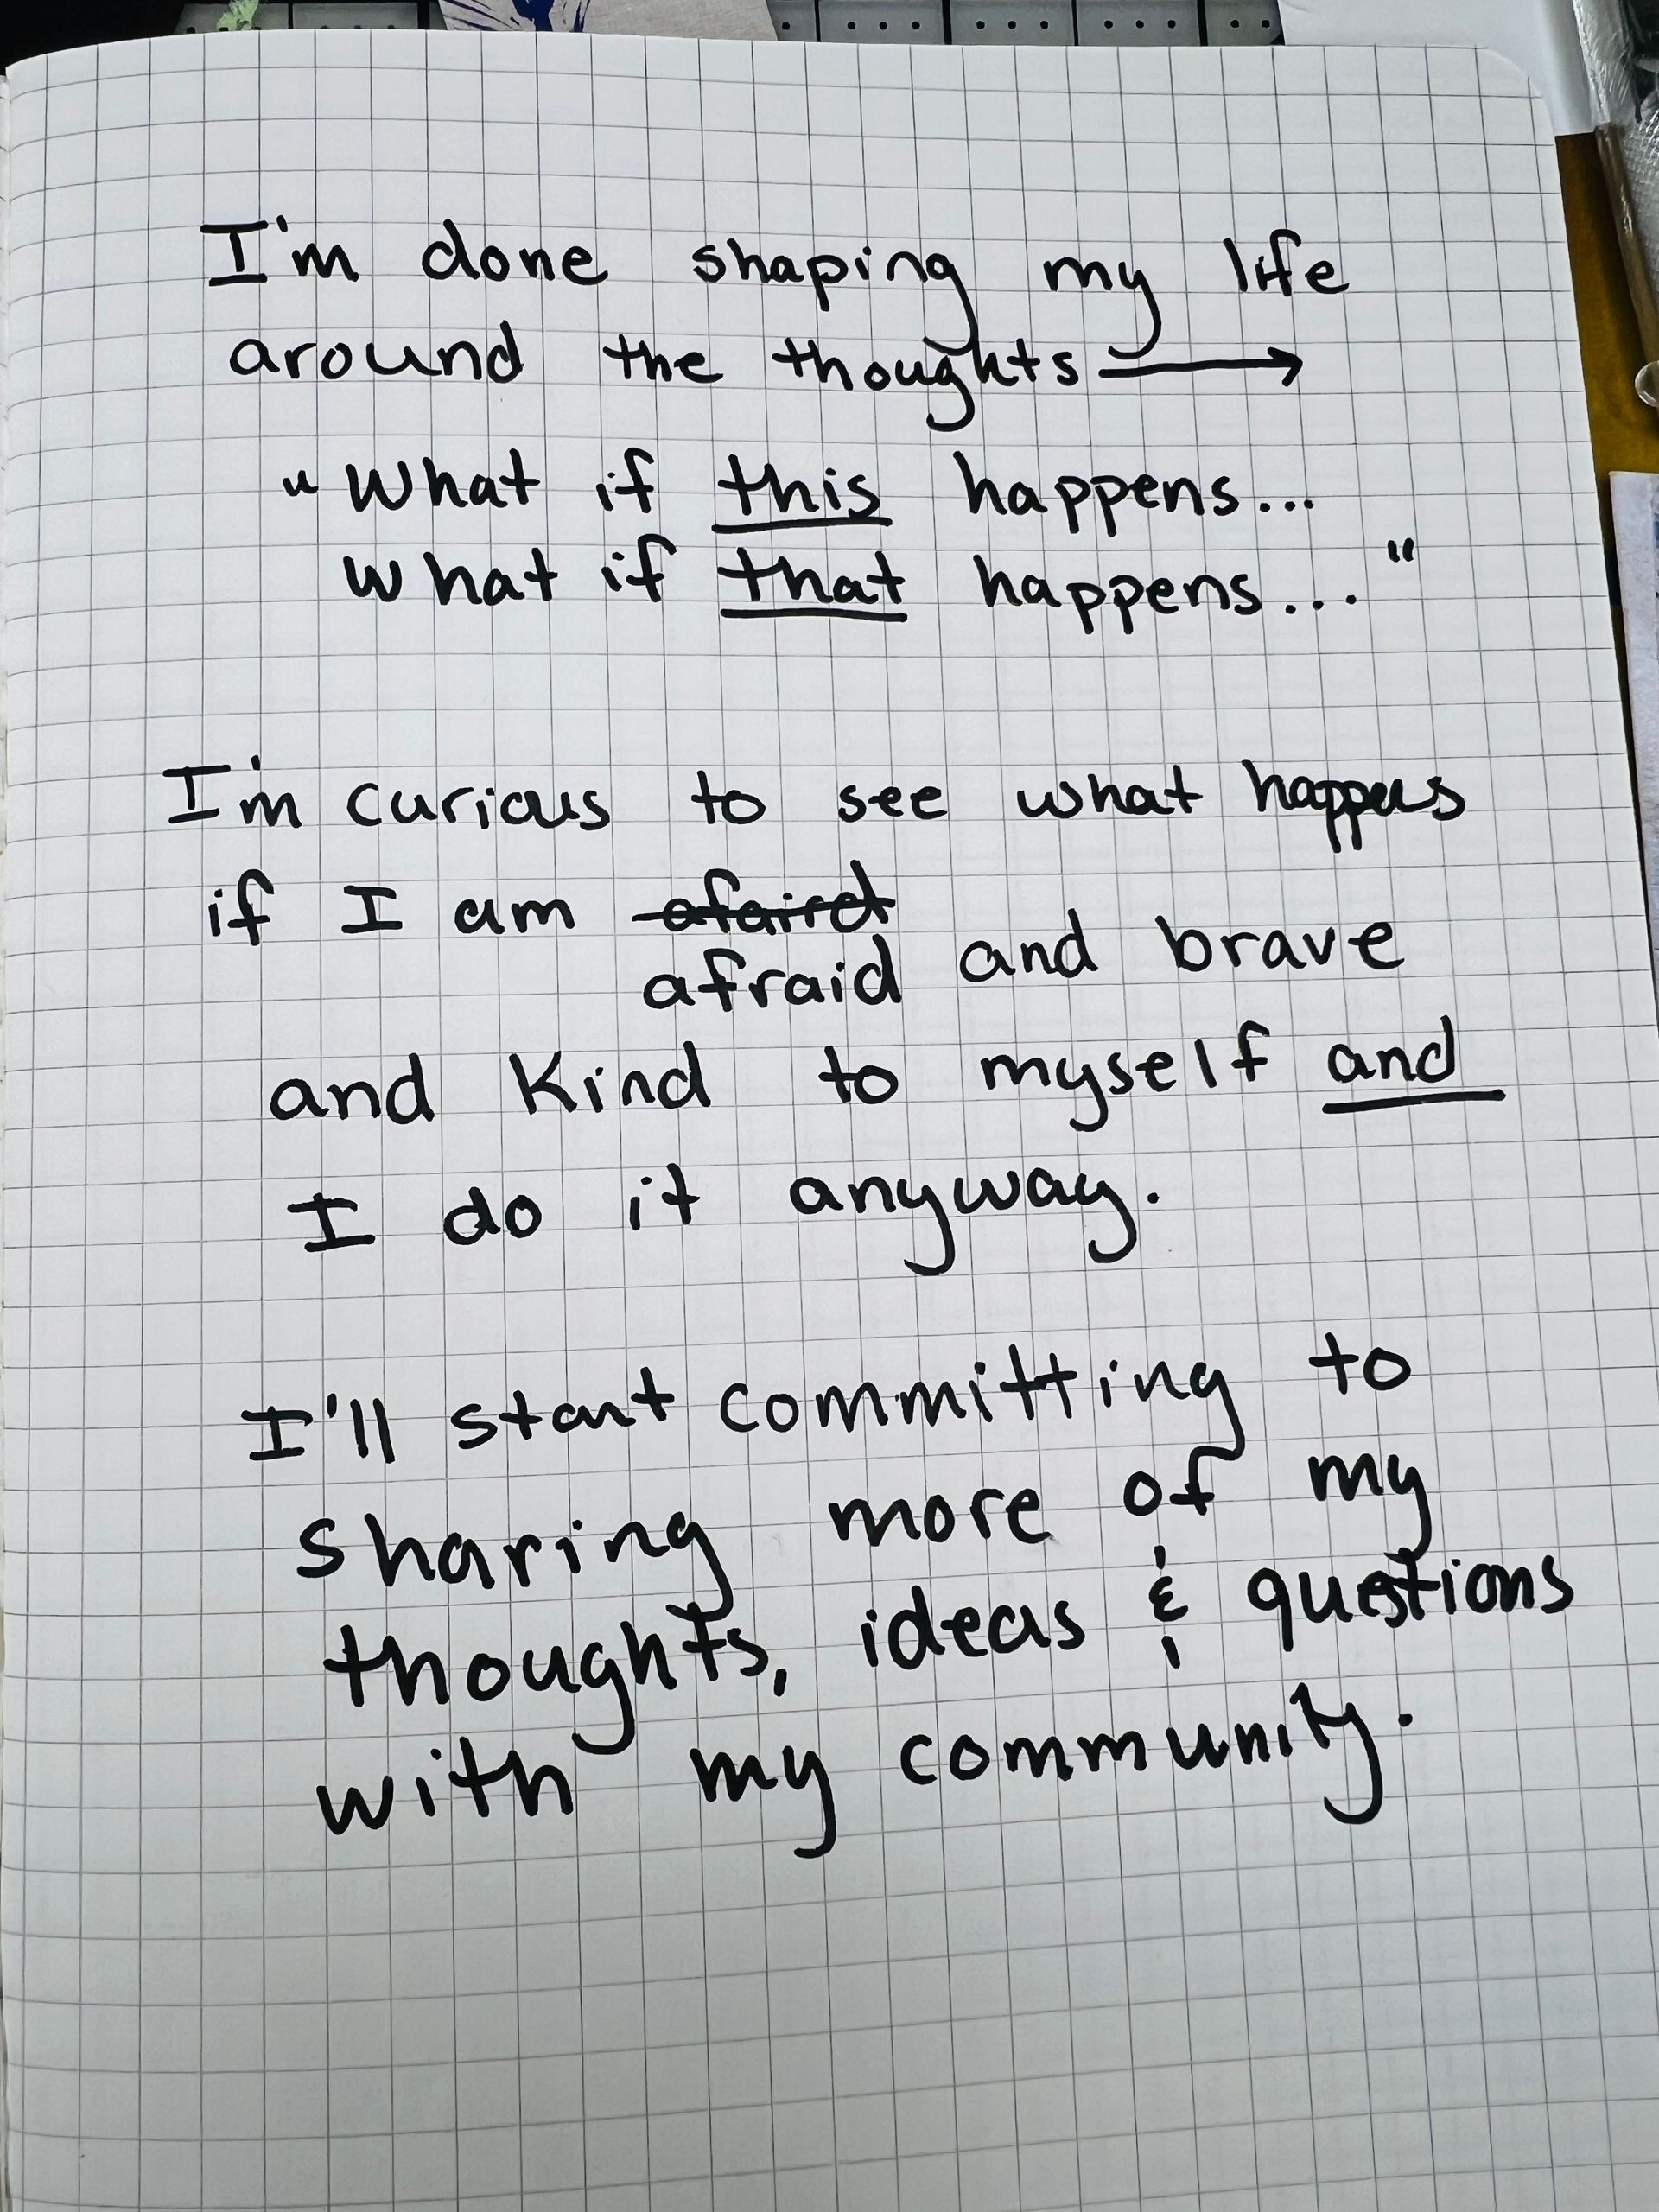 I'm done shaping my life
around the thoughts →
"What if this happens...
What if that happens..."
I'm curious to see what happens
if I am afaird
afraid and brave
and kind to myself and
I do it anyway.
I'll start committing to
sharing more of my
thoughts, ideas & questions
with my community.